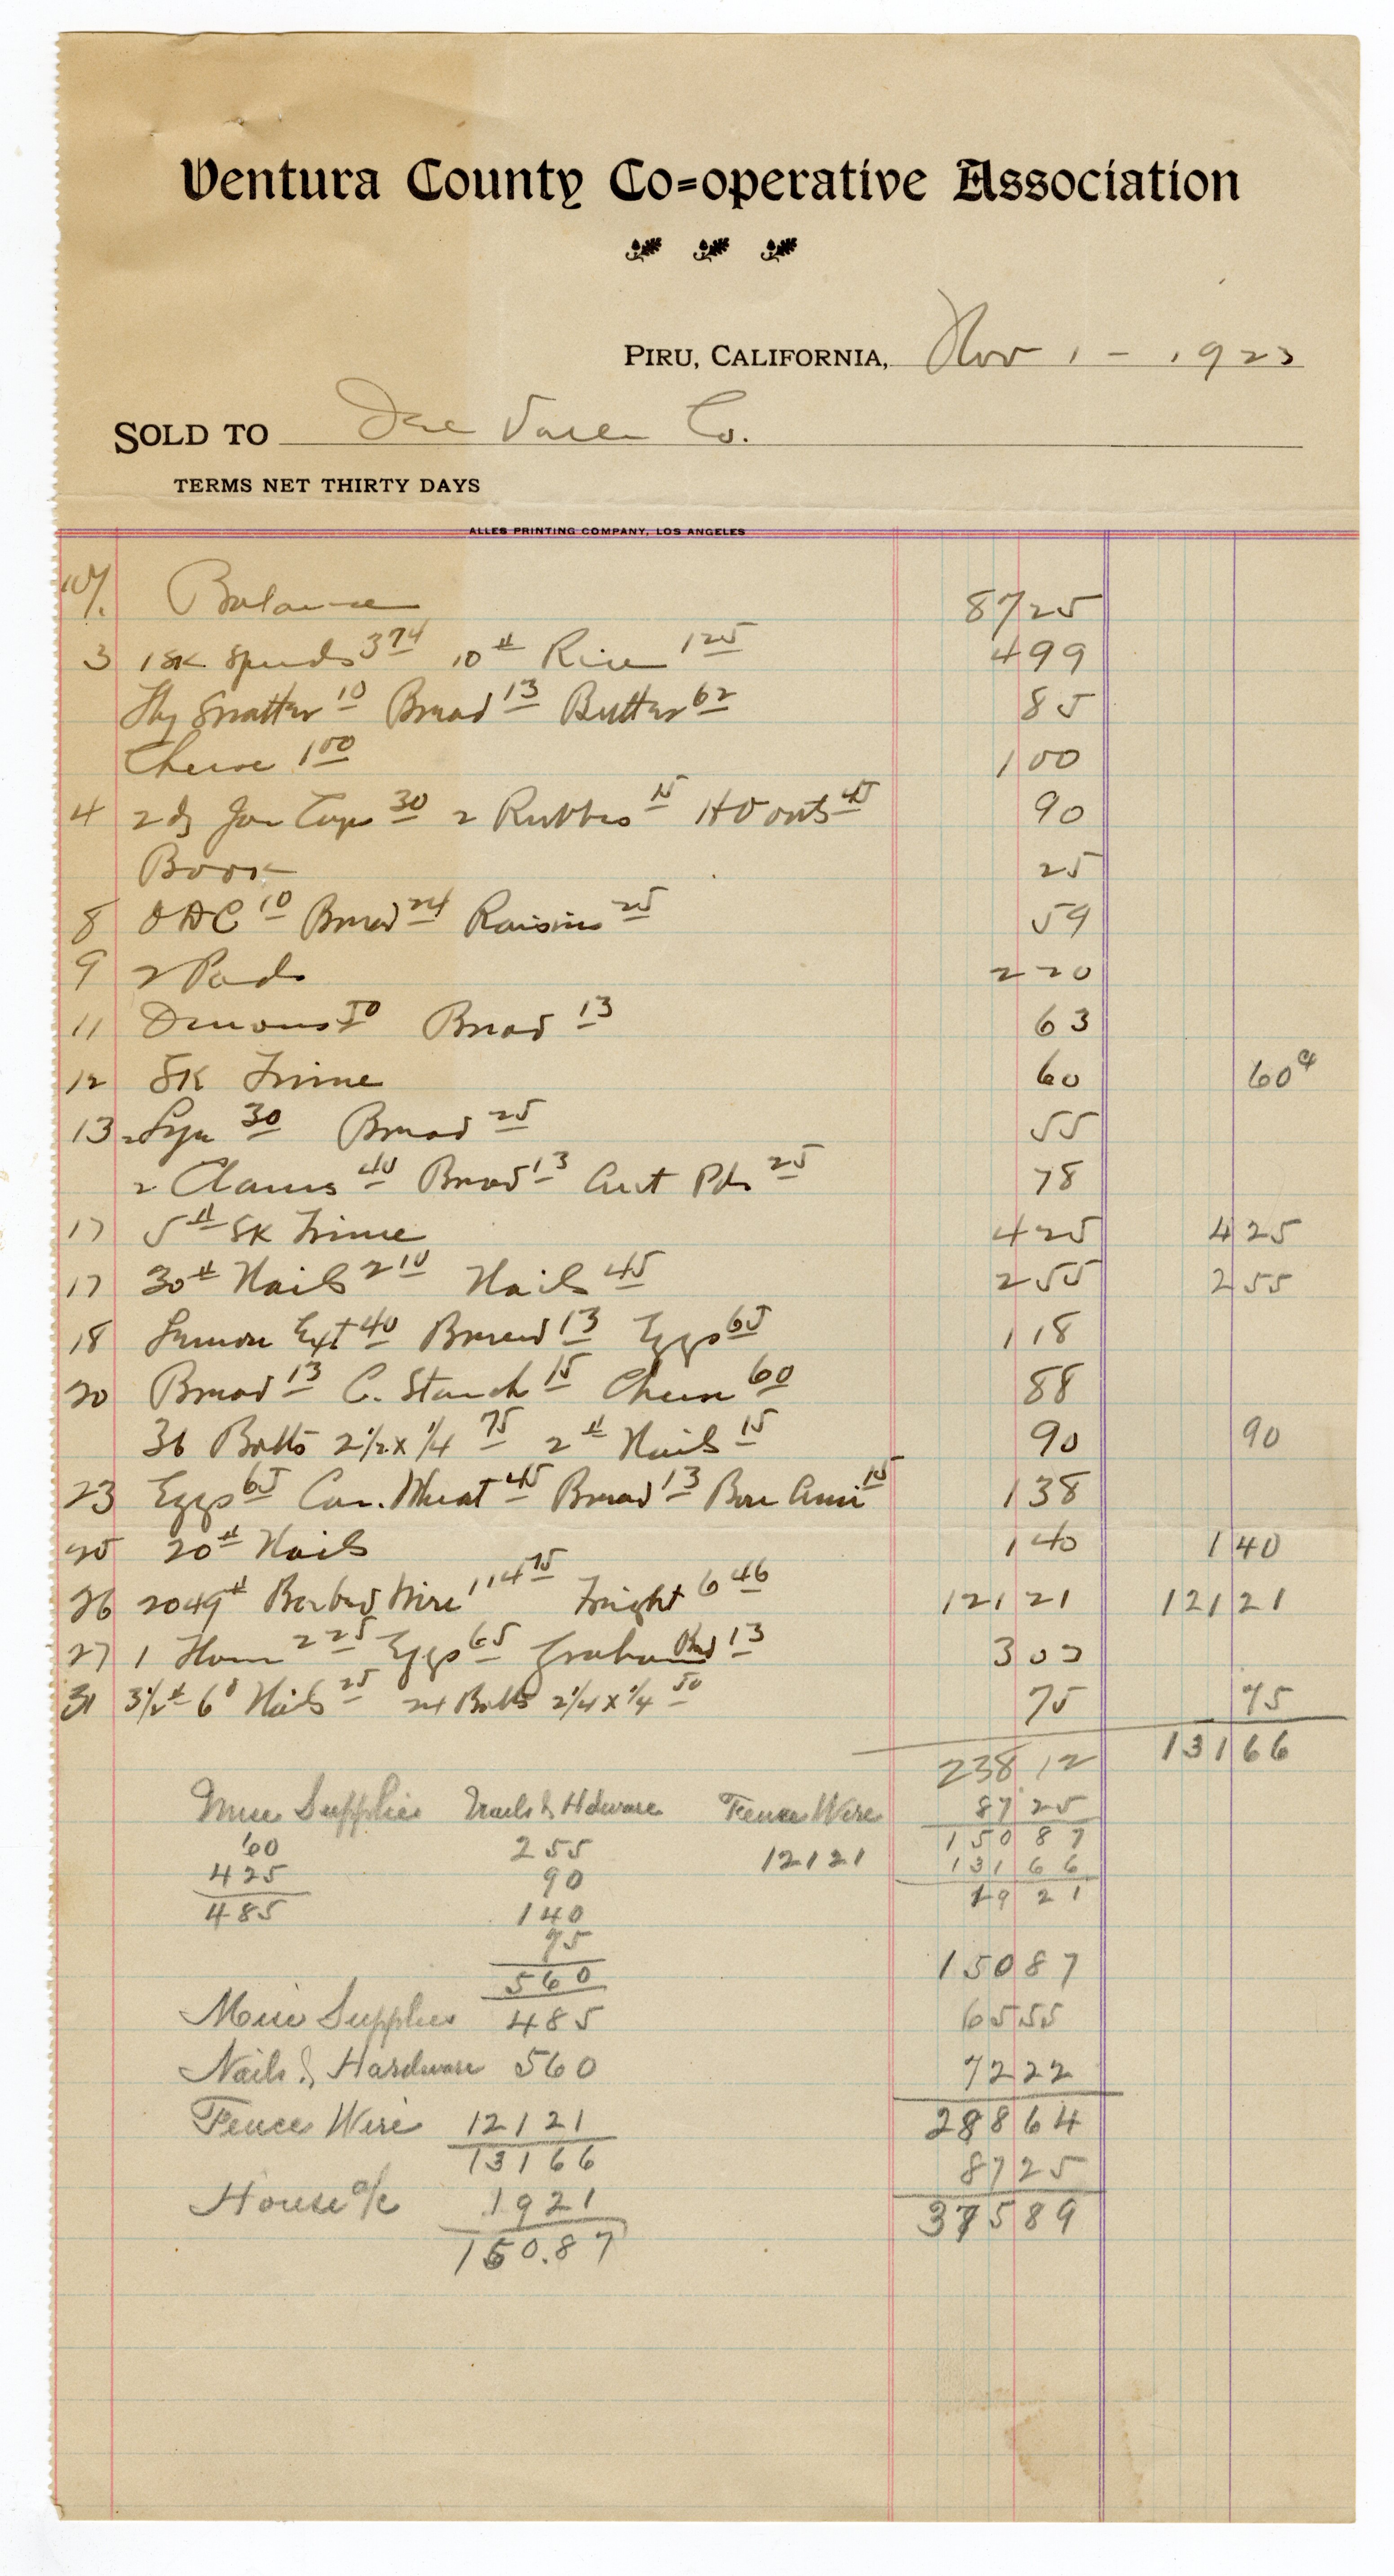 Ventura County Co=operative Association
PIRU, CALIFORNIA, Nov 1 - 1923
SOLD TO Del Valle Co.
TERMS NET THIRTY DAYS
ALLES PRINTING COMPANY, LOS ANGELES
10/1. Balance 87 25
3 1 SK Spuds 3 74 10 # Rice 1 25 4 99
Fly Swatter 10 Bread 13 Butter 62 85
Cheese 1 00 1 00
4 2 dz Jar Caps 30 2 Rubbers 15 H O oats 45 90
Book 25
8 ODC 10 Bread 24 Raisins 25 59
9 2 Pads 2 20
11 50 Bread 13 63
12 SK Lime 60 60 c
13 2 Lye 30 Bread 25 55
2 Clams 40 Bread 13 Pds 25 78
17 5 # SK Lime 4 25 4 25
17 30 # Nails 2 10 Nails 45 2 55 2 55
18 Lemon Ext 40 Bread 13 Eggs 65 1 18
20 Bread 13 C. Starch 15 Cheese 60 88
36 Bolts 2 1/2 x 1/4 75 2 # Nails 15 90 90
23 Eggs 65 Wheat 45 Bread 13 Bon Ami 15 1 38
25 20 # Nails 1 40 1 40
26 2049 # Barbed Wire 114 75 Freight 6 46 121 21 121 21
27 1 Ham 2 25 Eggs 65 Graham Brd 13 3 03
31 3 1/2 # 6 d Nails 25 24 Bolts 2 1/4 x 1/4 50 75 75
238 12 131 66
Misc Supplies Nails & Hdware Fence Wire 87 25
60 2 55 121 21 150 87
4 25 90 131 66
4 85 1 40 19 21
75
5 60 150 87
Misc Supplies 4 85 65 55
Nails & Hardware 5 60 72 22
Fence Wire 121 21 288 64
131 66 87 25
House a/c 19 21 375 89
150.87